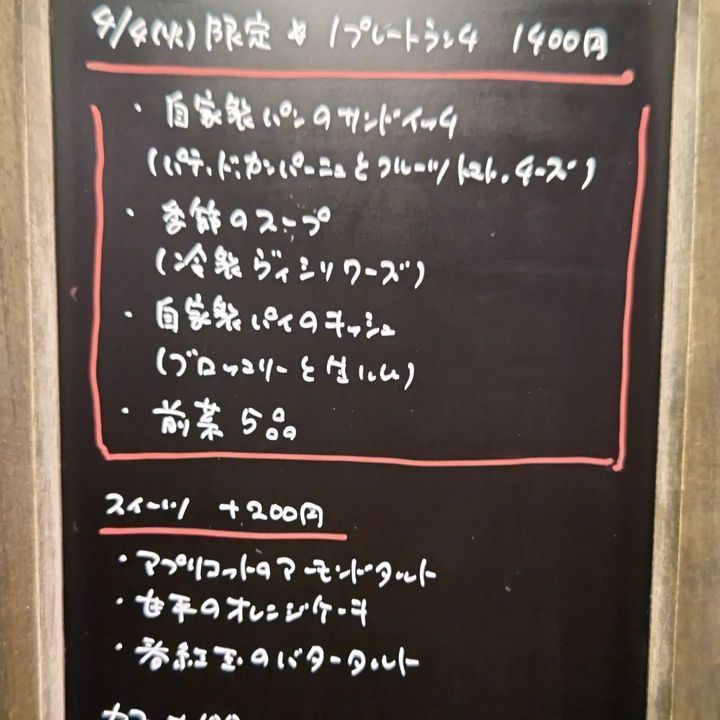 4/4(火)限定 * 1プレートランチ 1400円
・自家製パンのサンドイッチ
(パテ・ド・カンパーニュとフルーツトマト、チーズ)
・季節のスープ
(冷製ヴィシソワーズ)
・自家製パイのキッシュ
(ブロッコリーと生ハム)
・前菜5品
スイーツ +200円
・アプリコットのアーモンドタルト
・甘平のオレンジケーキ
・春紅玉のバタータルト